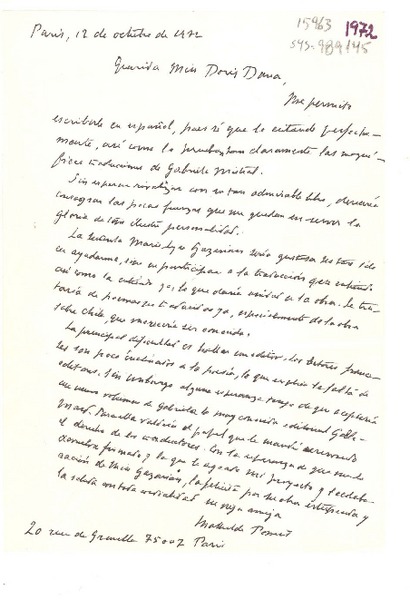 15963 1972
sys-989145
París, 12 de octubre de 1972
Querida Miss Doris Dana,
Me permito
escribirle en español, pues sé que lo entiende perfecta-
mente, así como lo prueban tan claramente las magní-
ficas traducciones de Gabriela Mistral.
Sin esperar rivalizar con su tan admirable libro, desearía
consagrar las pocas fuerzas que me quedan en servir la
gloria de esta ilustre personalidad.
La Marie-Lyse Gazarian
en ayudarme, a participar a la traducción que
así como la que daría unidad a la obra. Se tra-
taría de poemas no traducidos ya, especialmente de la obra
sobre Chile, que merecería ser conocida.
La principal dificultad es hallar un editor. Los lectores france-
ses son poco inclinados a la poesía, lo que explica la falta de
editores. Sin embargo alguna esperanza tengo de que aceptaría
un nuevo volumen de Gabriela la muy conocida editorial Galli-
mard. el papel que le mandé
el derecho de las traductoras. Con la esperanza de que
firmado y la que le agrade mi proyecto y la colabo-
ración de Miss Gazarian, la felicito por su obra y
la saluda con toda cordialidad su vieja amiga
Mathilde Pomès
20 rue de Grenelle 75007 Paris